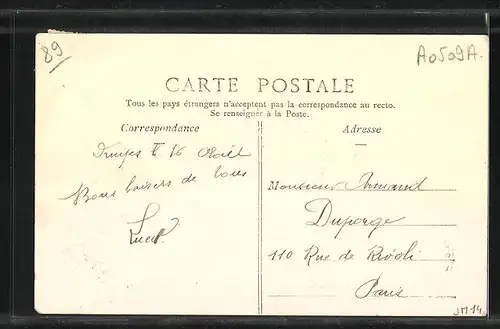 89
A0509A.
CARTE POSTALE
Tous les pays étrangers n'acceptent pas la correspondance au recto.
Se renseigner à la Poste.
Correspondance
16
Bons baisers de tous
Adresse
Monsieur Armand
Duporge
110 Rue de Rivoli
Paris